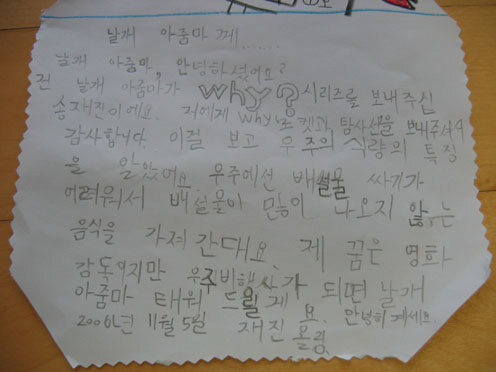 날개 아줌마 께......
날개 아줌마, 안녕하셨어요?
전 날개 아줌마가 why? 시리즈를 보내주십
송재진이에요. 저에게 why 로켓과 탐사선을 보내주셔서
감사합니다. 이걸 보고 우주의 식량의 특징
을 알았어요. 우주에선 배설물 싸기가
어려워서 배설물이 많이 나오지 않는
음식을 가져 간대요. 제 꿈은 영화
감독이지만 우주비행사가 되면 날개
아줌마 태워 드릴게요. 안녕히 계세요.
2006년 11월 5일 재진 올림